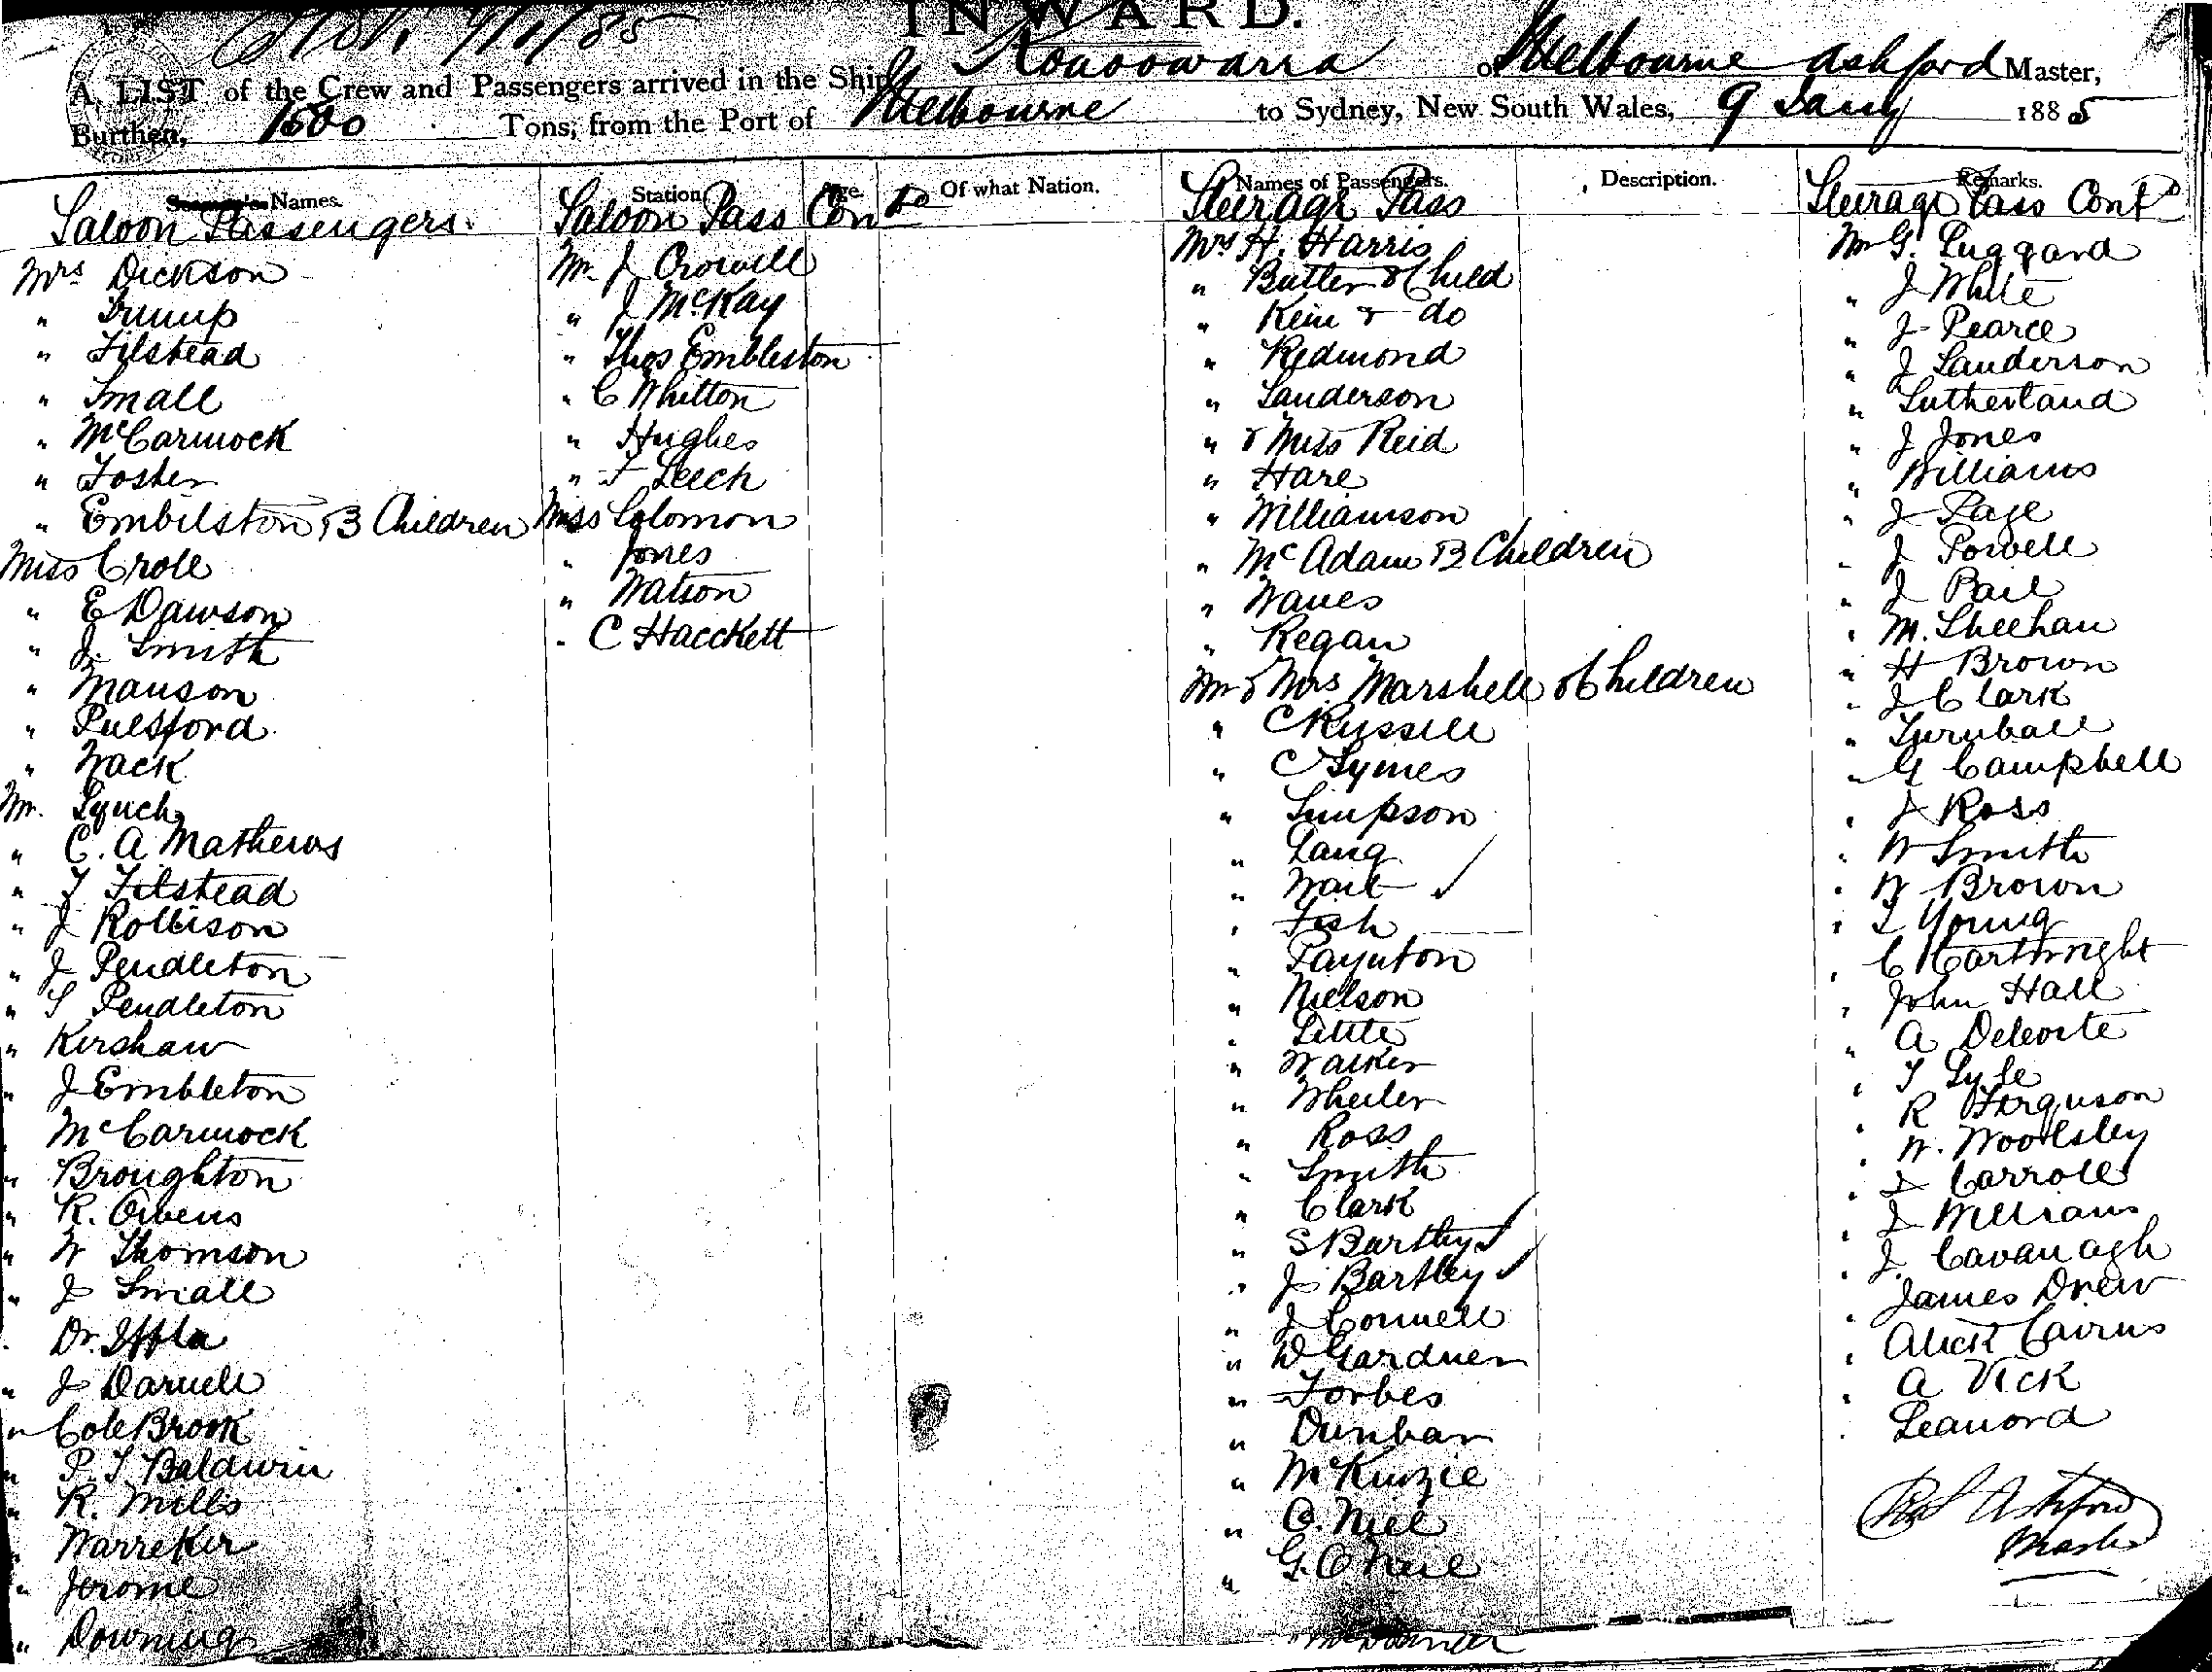 INWARD.
A LIST of the Crew and Passengers arrived in the Ship Konoowarra of Melbourne Ashford Master,
Burthen, 1500 Tons, from the Port of Melbourne to Sydney, New South Wales, 9 Jany 1885
Names.
Saloon Passengers.
Mrs Dickson
" Trump
" Filstead
" Small
" McCarmock
" Foster
" Embilston & 3 Children
Miss Crole
" E Dawson
" J. Smith
" Manson
" Pulsford
" Wack
Mr. Lynch
" C. A Mathews
" T Filstead
" J Rollison
" J Pendleton
" S Pendleton
" Kershaw
" J Embleton
McCarmock
" Broughton
" R. Owens
" W Thomson
" J Small
Dr.
" J Darnell
" Cole Brook
" P. T. Baldwin
" R. Mills
" Warreker
" Jerome
" Downing
Station Age.
Saloon Pass Contd
Mr. J Crowell
" J McKay
" Thos Embleston
" C Whitton
" Hughes
" F Leech
Miss Solomon
" Jones
" Watson
" C Hacckett
Of what Nation.
Names of Passengers.
Steerage Pass
Mrs H. Harris
" Butler & Child
" Keiu & do
" Redmond
" Sanderson
" & Miss Reid
" Hare
" Williamson
" McAdam & 3 Children
" Waues
" Regan
Mr & Mrs Marshell & Children
" C Russell
" C Symes
" Simpson
" Lang
" Wait
" Fish
" Paynton
" Nielson
" Little
" Walker
" Wheeler
" Ross
" Smith
" Clark
" S Bartley
" J Bartley
" J Connell
" W Gardner
" Forbes
" Dunbar
" McKinzie
" O. Niel
" G. O Neil
" McDonnell
Description.
Remarks.
Steerage Pass Contd
Mr G. Luggard
" J White
" J Pearce
" J Sanderson
" Sutherland
" J Jones
" Williams
" J Page
" J Powell
" J Pail
" M. Sheehan
" H Brown
" J Clark
" Turnball
" G Campbell
" J Ross
" W Smith
" W Brown
" T Young
" C Cartwright
" John Hall
" A Deleorte
" T Lyle
" R Ferguson
" W. Woolsley
" J Carroll
" J Williams
" J. Cavanagh
" James Drew
" Alick Cairns
" A Vick
" Leanord
Ashford
Master